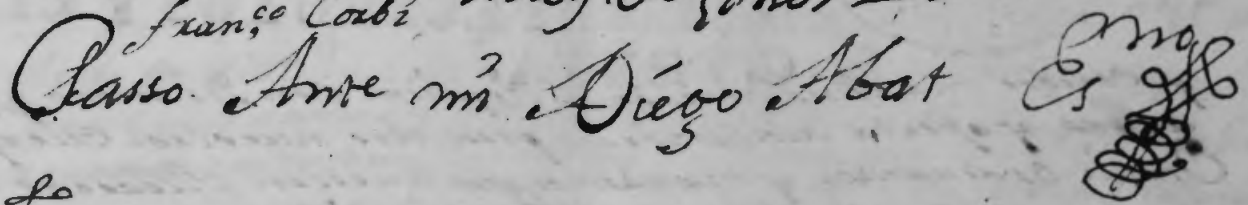 fran.co Corbi
Passo Ante mi Diego Abat Esno